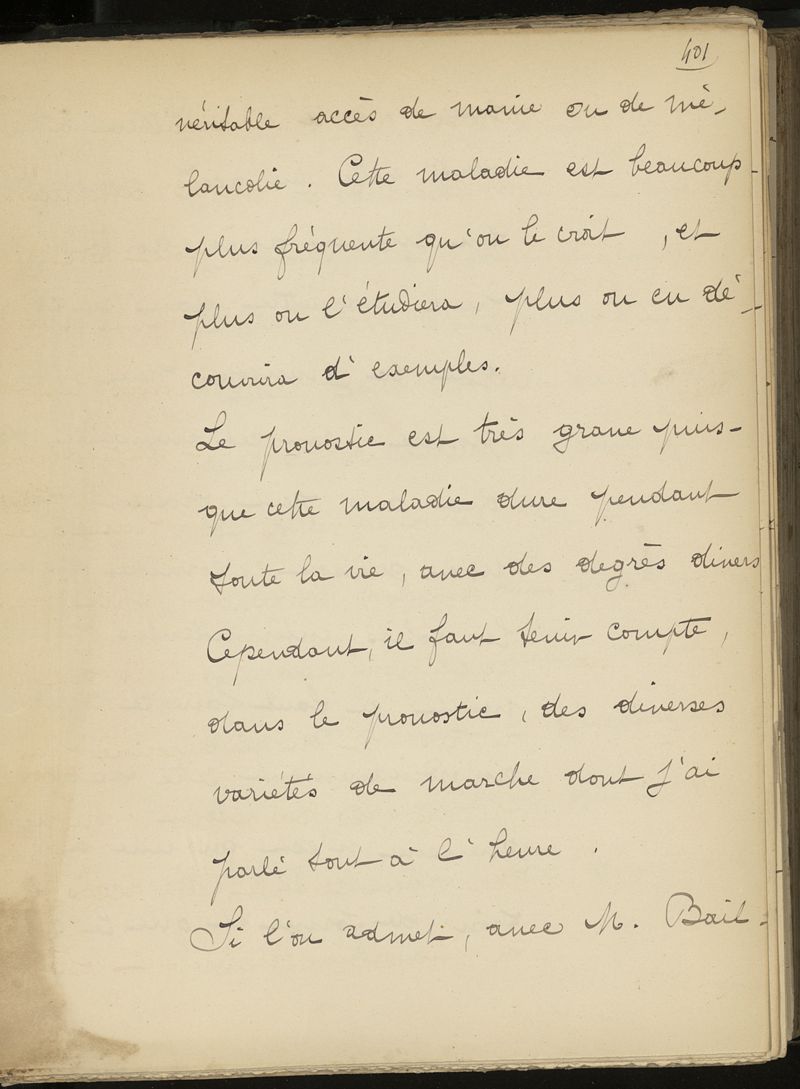 401
véritable accès de manie ou de mé-
lancolie. Cette maladie est beaucoup
plus fréquente qu'on le croit, et
plus on l'étudiera, plus on en dé-
couvrira d'exemples.
Le pronostic est très grave puis-
que cette maladie dure pendant
toute la vie, avec des degrès divers
Cependant, il faut tenir compte,
dans le pronostic, des diverses
variétés de marche dont j'ai
parlé tout à l'heure.
Si l'on admet, avec M. Bail-